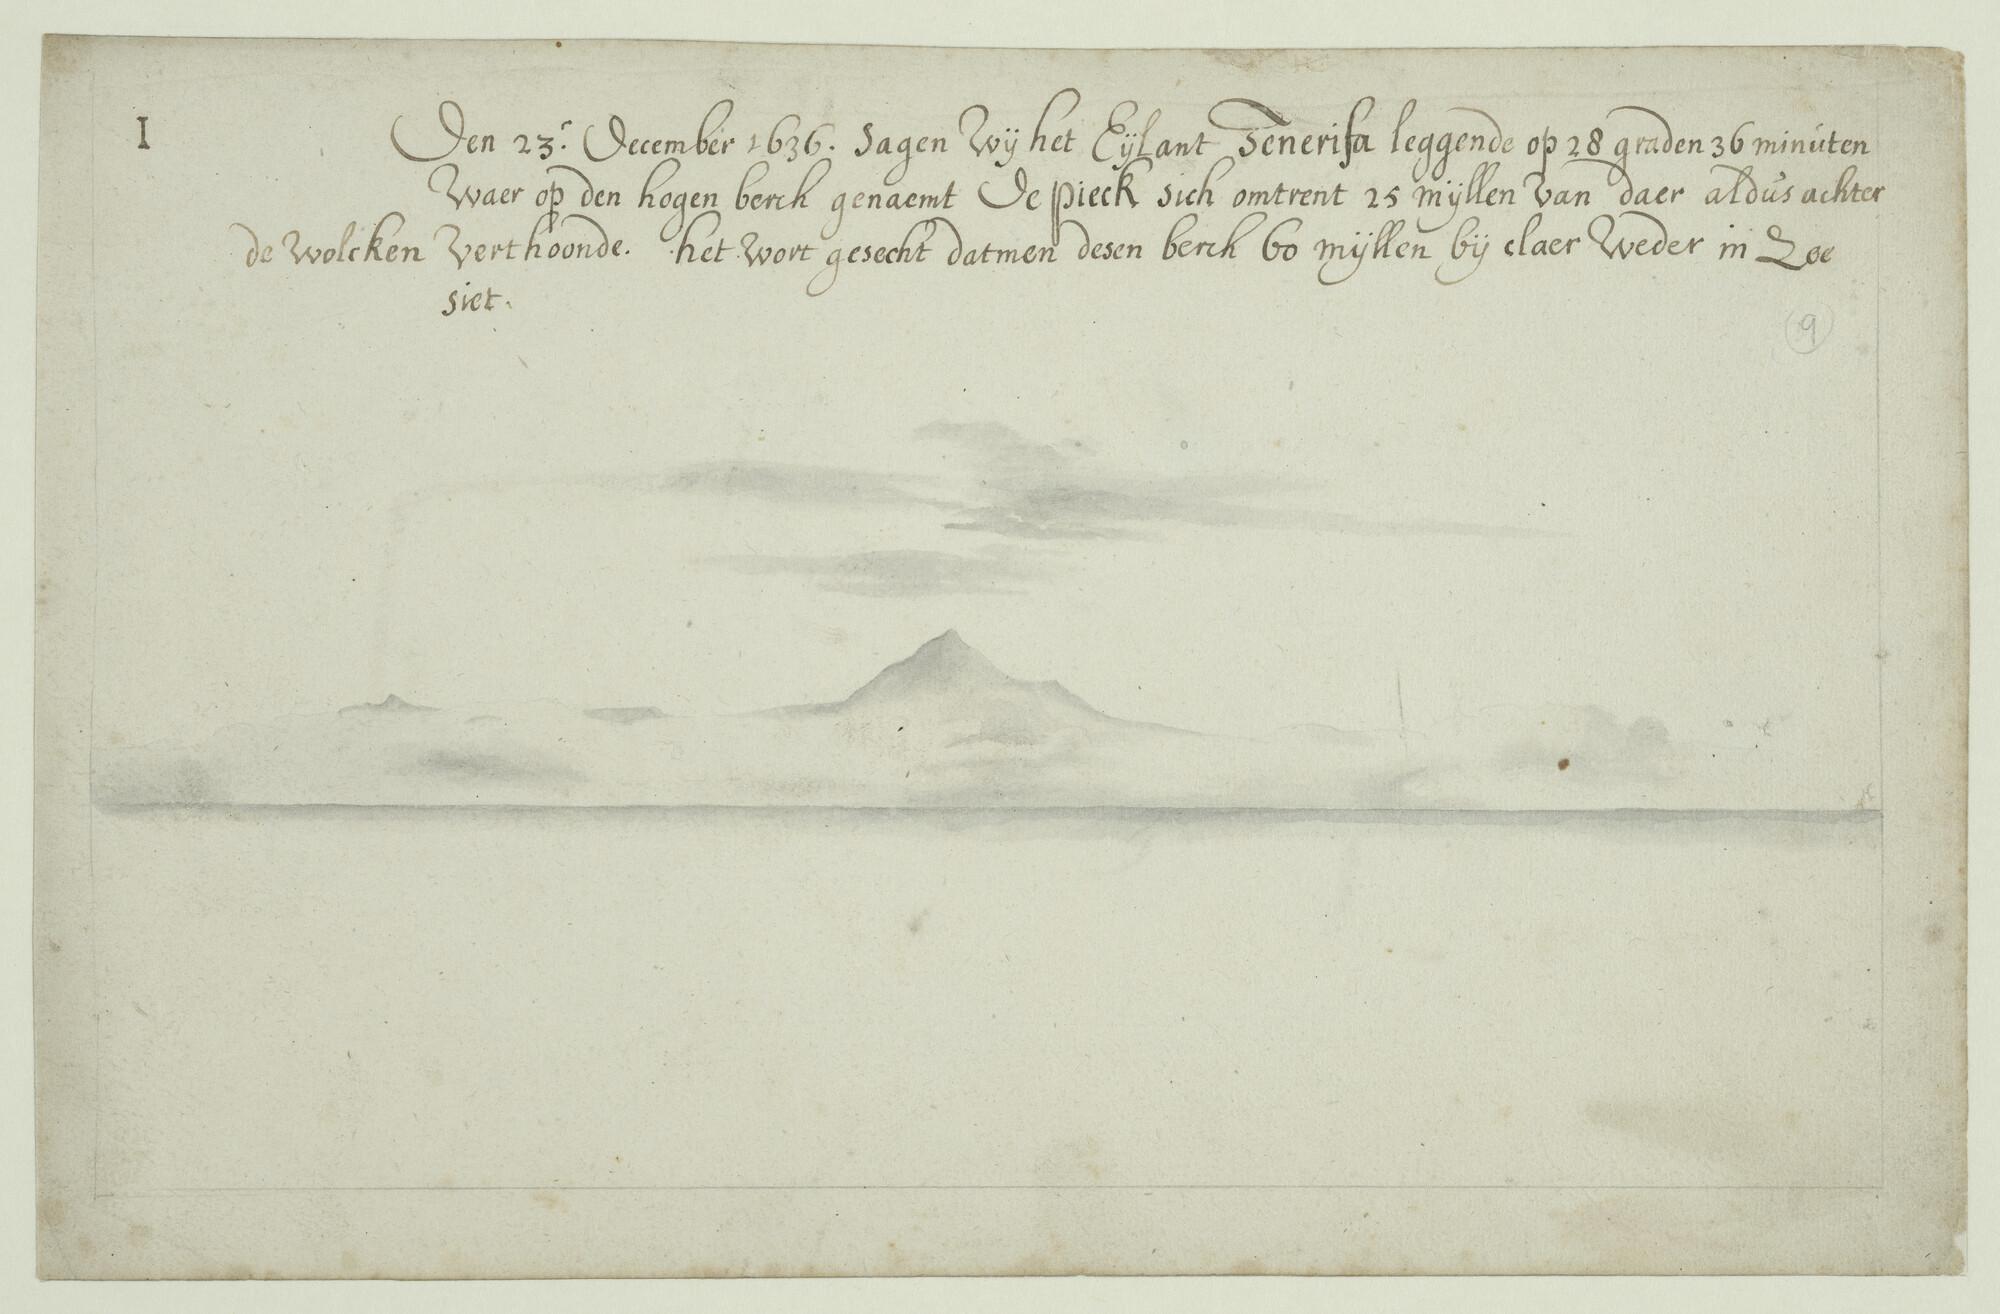 I
Den 23.e December 1636. Sagen Wÿ het Eÿlant Tenerifa leggende op 28 graden 36 minúten
Waer op den hogen berch genaemt De Pieck sich omtrent 25 mÿllen van daer aldús achter
de Wolcken Verthoonde. het Wort gesecht datmen desen berch 60 mÿllen bÿ claer Weder in Zee
siet.
9